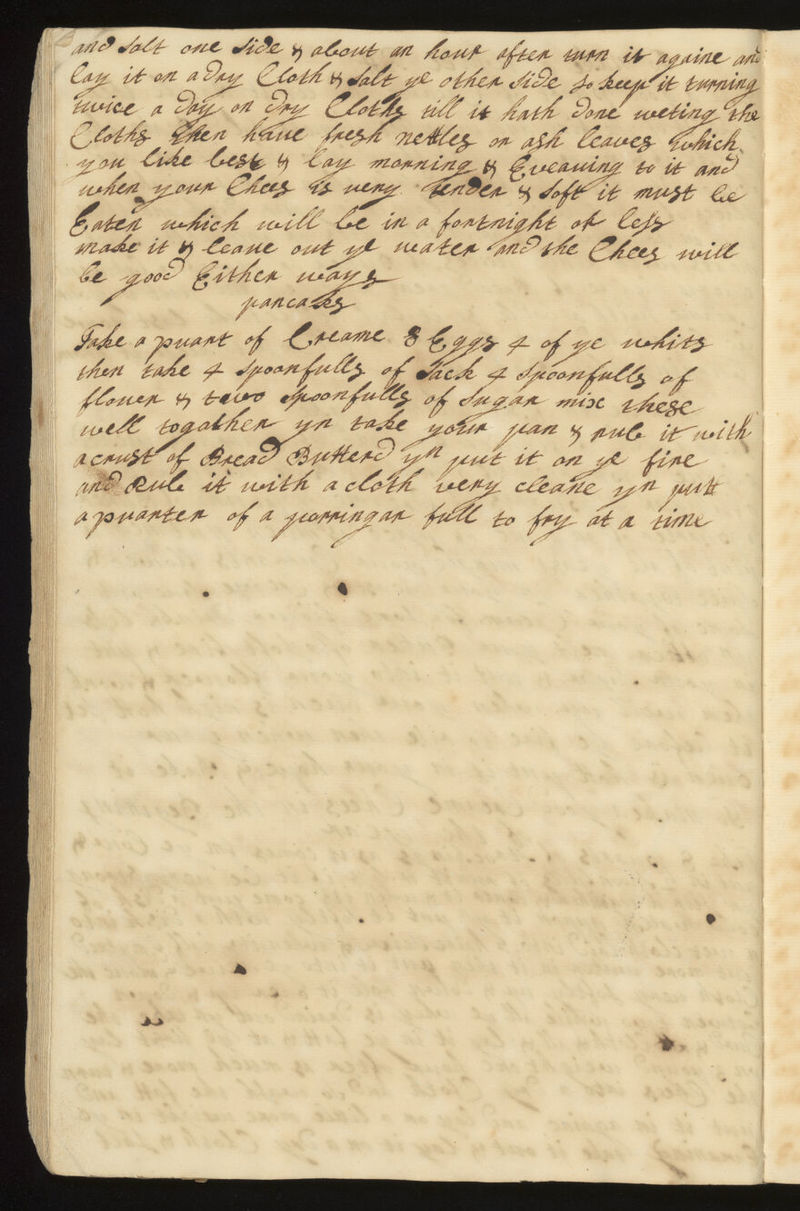 and salt one side & about an hour after turn it againe and
lay it on a dry Cloth & salt ye other side so keep it turning
twice a day on dry Cloths till it hath done weting the
Cloths then have fresh nettles or ash leaves which
you like best & lay morning & Eveaning to it and
when your Chees is very tender & soft it must be
Eaten which will be in a fortnight or less
make it & leave out ye water and the Chees will
be good Either ways
pancakes
Take a quart of Creame 8 Eggs 4 of ye whits
then take 4 spoonfulls of Sack 4 spoonfulls of
flower & two spoonfulls of sugar mix these
well togather yn take your pan & rub it with
a crust of Bread Butterd yn put it on ye fire
and Rub it with a cloth very cleane yn putt
a quarter of a porringar full to fry at a time